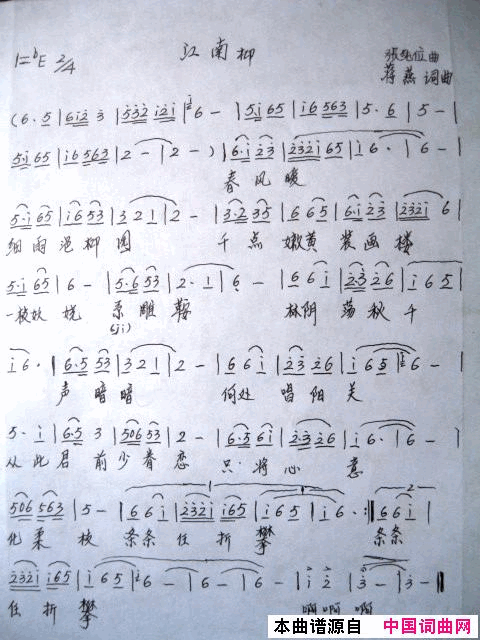 江南柳
1=♭E 2/4
张 位曲
蒋燕 词曲
(6·5|6i2 3|532 i2i|6 -|5·i 65|i6 563|5·6|5 -|
5·i 65|i6 563|2 -|2 -)|6·i 23|232i 65|i 6·|6 -|
春风暖
5·i 65|i6 53|3 2 1|2 -|3·2 35|6 6 5|6·i 23|232i 6|
细雨浥柳圆 千点嫩黄装画楼
5·i 65|6 -|5·6 53|2·1|6 -|6 6 i|23 26|i 6 5|
一枝妖娆系雕鞍 林阴荡秋千
(ji)
i 6·|6·5 53|3 2 1|2 -|6 6 i|23 26|i 6 5|6 -|
声暗暗 何处唱阳关
5·i|6·5 3|506 53|2 -|6·5 6i|2·3 26|i 6·|6 -|
从此君前少眷恋 只将心意
506 563|5 -|6 6 i|232i i65|i 6 5|i 6·:‖6 6 i|
化柔枝 条条任折攀 条条
1 2
232i i65|6 -|6 -|6 -|i 2|3 -|3 -‖
任折攀 啊啊啊
本曲谱源自 中国词曲网